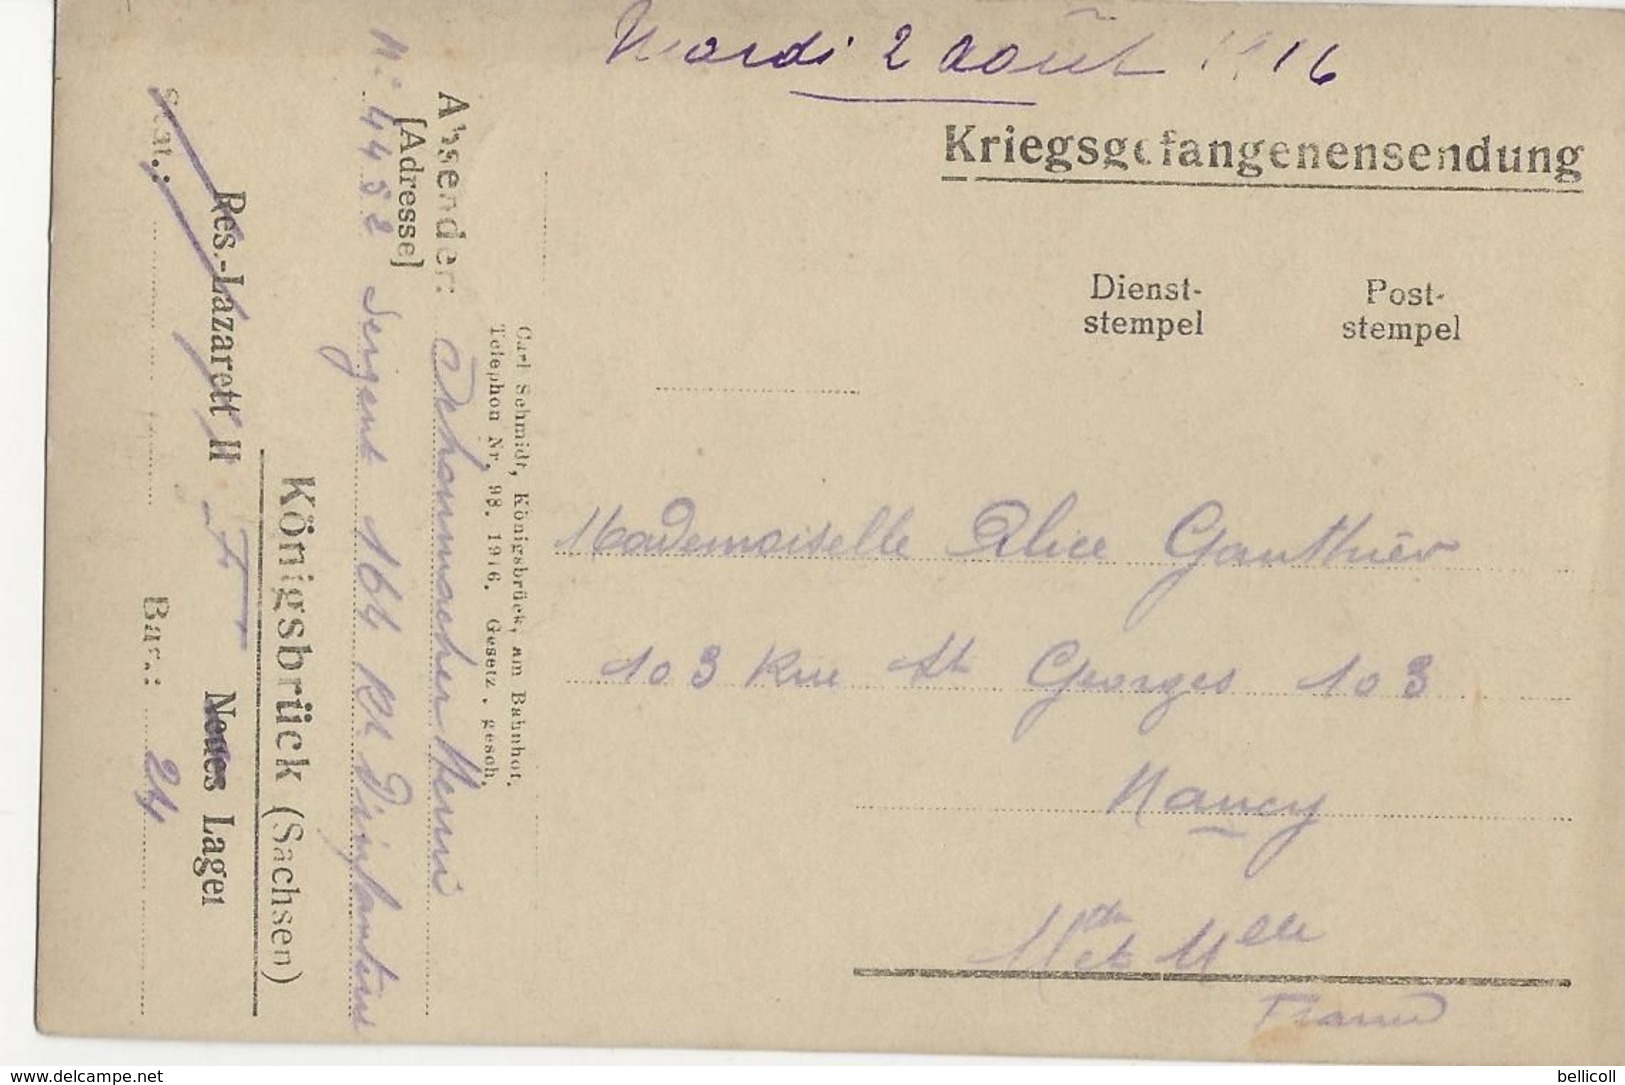 Mardi 2 août 1916
Kriegsgefangenensendung
Dienst-
stempel
Post-
stempel
Mademoiselle Alice Gauthier
103 Rue St Georges 103
Nancy
Mthe et Mlle
France
Carl Schmidt, Königsbrück, am Bahnhof.
Telephon Nr. 98. 1916. Gesetz. gesch.
Absender: Schonmacher Henri
[Adresse]
N: 4452 Sergent 164 Rt D'infanterie
Königsbrück (Sachsen)
Res.-Lazarett II Neues Lager
Stat.: Bar.: 24
delcampe.net
bellicoll